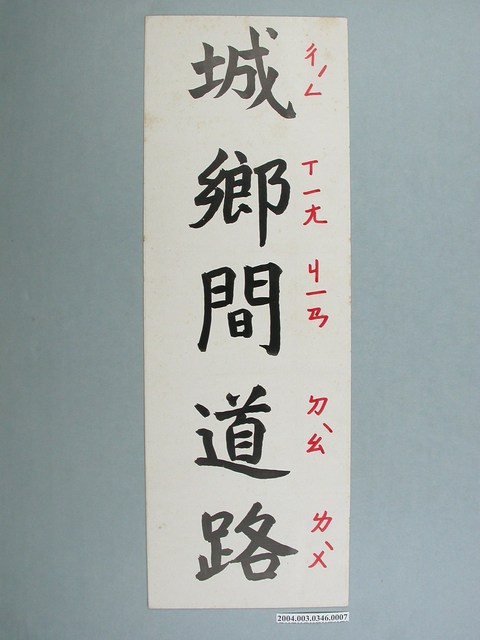 城鄉間道路
ㄔㄥˊ ㄒㄧㄤ ㄐㄧㄢ ㄉㄠˋ ㄌㄨˋ
2004.003.0346.0007